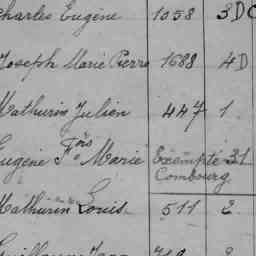 Charles Eugène 1058 3 D C
Joseph Marie Pierre 1688 4 D
Mathurin Julien 447 1
Eugène Fois Marie Exempté 31
Combourg
Mathurin Louis 511 2